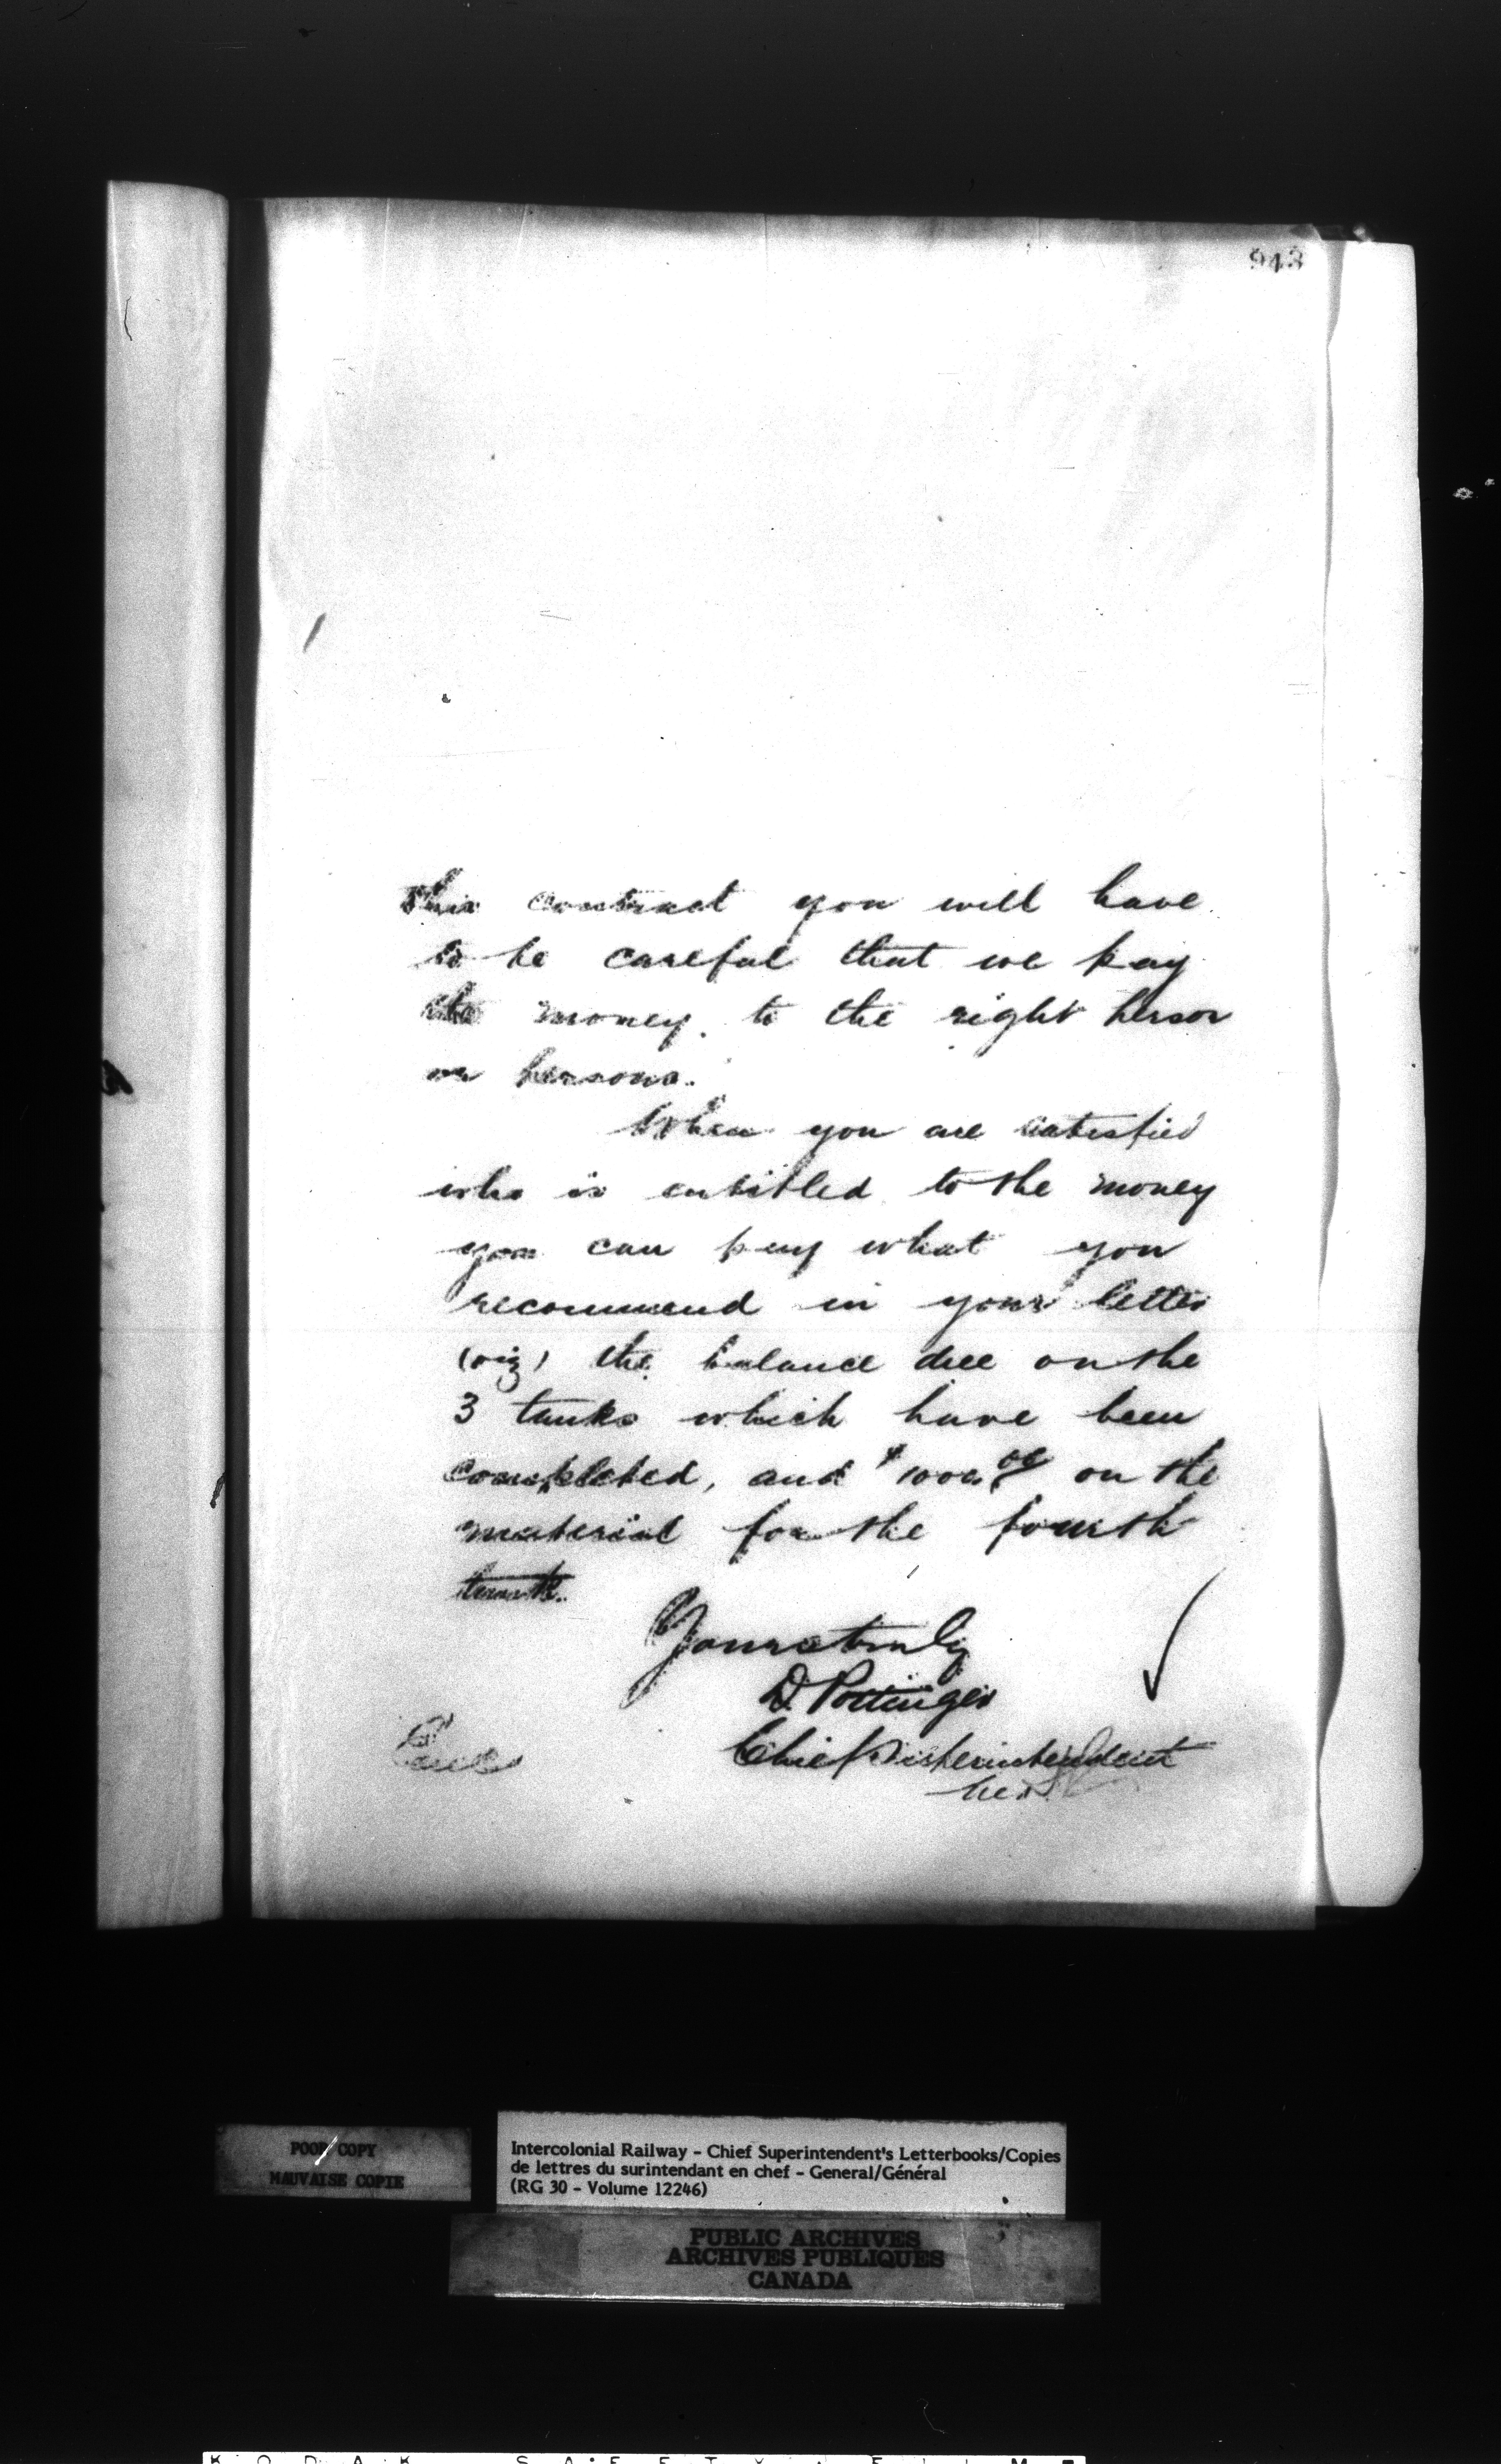 943
this contract you will have
to be careful that we pay
the money to the right person
or persons.
When you are satisfied
who is entitled to the money
you can pay what you
recommend in your letter
(viz) the balance due on the
3 tanks which have been
completed, and $1000.00 on the
material for the fourth
tank.
Yours truly
D. Pottinger
Chief Superintendent
POOR COPY
MAUVAISE COPIE
Intercolonial Railway - Chief Superintendent's Letterbooks/Copies
de lettres du surintendant en chef - General/Général
(RG 30 - Volume 12246)
PUBLIC ARCHIVES
ARCHIVES PUBLIQUES
CANADA
KODAK SAFETY FILM